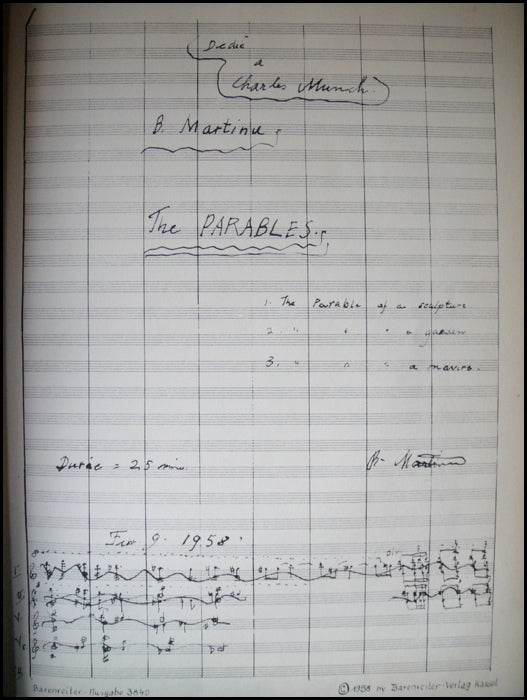 Dedié
a
Charles Munch.
B. Martinu
The PARABLES.
1. The Parable of a sculpture.
2. " " " a garden
3. " " " a navire.
Durée = 25 min.
B. Martinu
9. 1958
div.
I.
II.
V.
Bärenreiter-Ausgabe 3840
© 1958 by Bärenreiter-Verlag Kassel